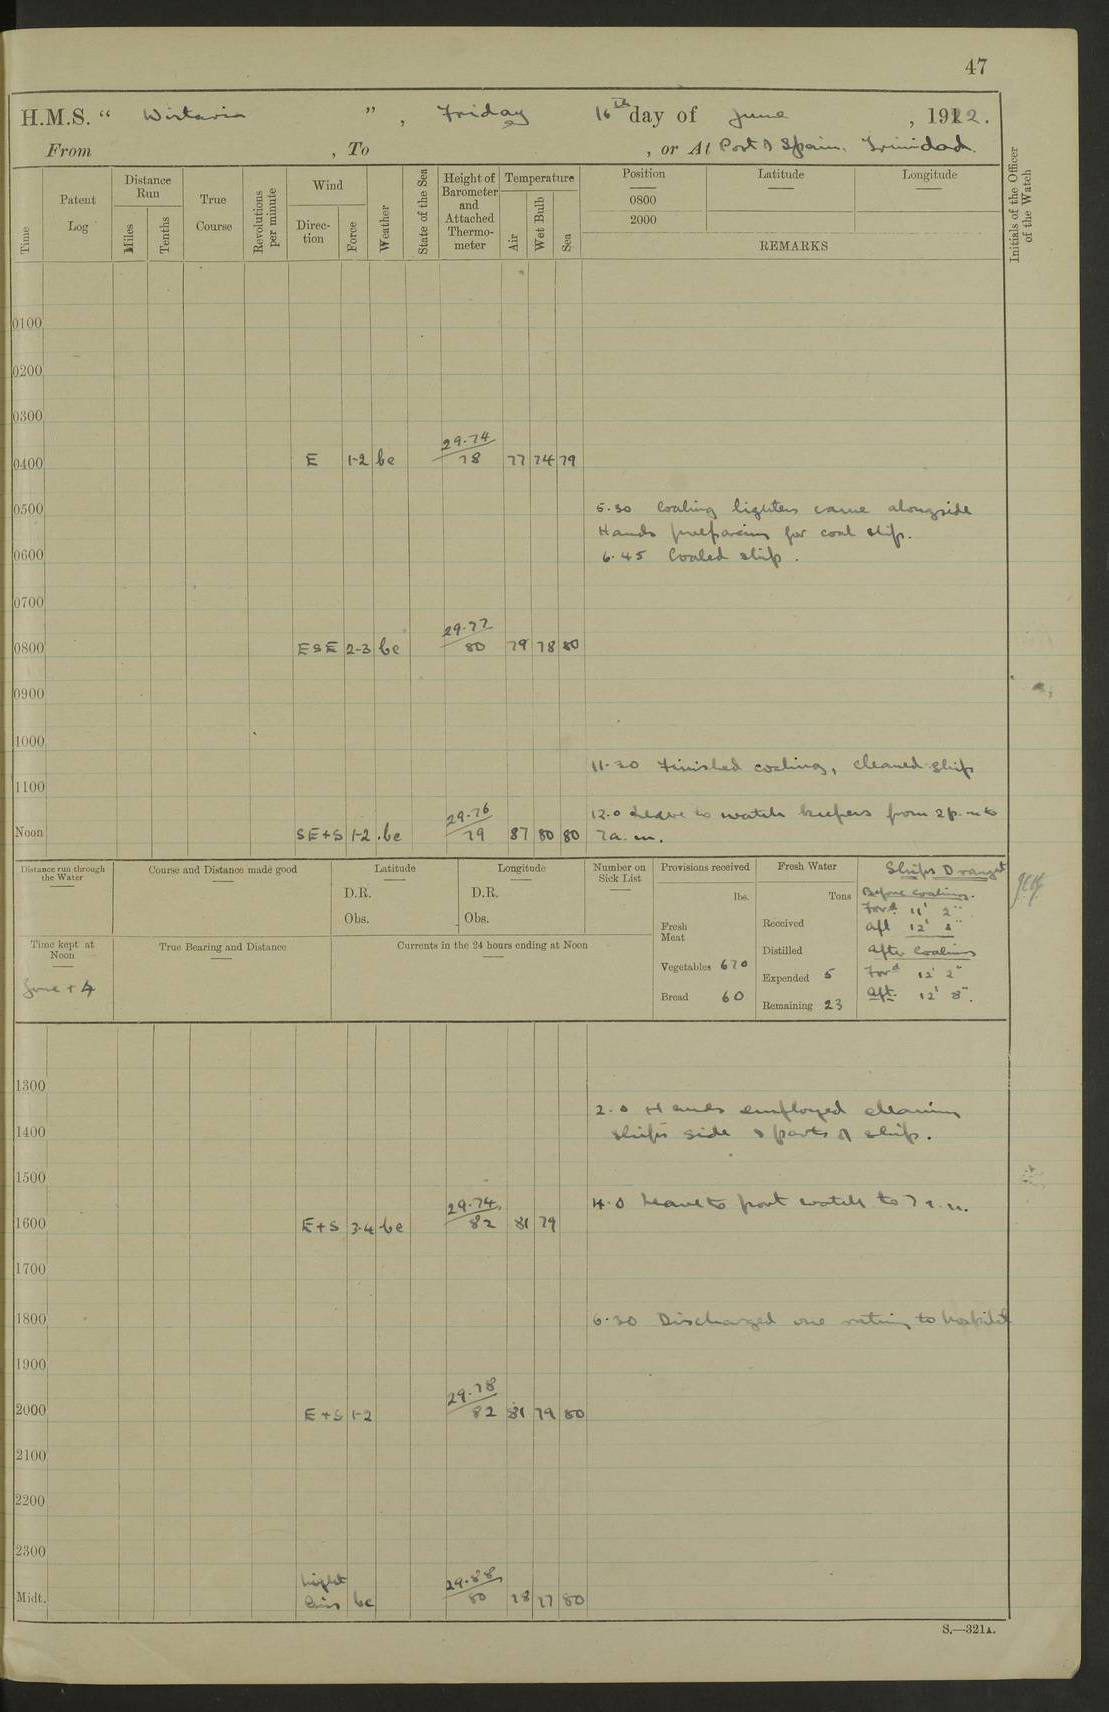 47
H.M.S. “ Wistaria ” , Friday 16th day of June , 1922.
From , To , or At Port of Spain. Trinidad.
Time
Patent Log
Distance Run
Miles
Tenths
True Course
Revolutions per minute
Wind
Direction
Force
Weather
State of the Sea
Height of Barometer and Attached Thermometer
Temperature
Air
Wet Bulb
Sea
Position
0800
2000
Latitude
Longitude
REMARKS
Initials of the Officer of the Watch
0100
0200
0300
0400 E 1-2 bc 29.74 78 77 74 79
0500 5.30 Coaling lighters came alongside
Hands preparing for coal ship.
0600 6.45 Coaled ship.
0700
0800 ESE 2-3 bc 29.77 80 79 78 80
0900
1000
11.30 Finished coaling, cleaned ship
1100
12.0 Leave to watch keepers from 2 p.m to
Noon SE+S 1-2 .bc 29.76 79 87 80 80 7 a.m.
Distance run through the Water
Course and Distance made good
Latitude
D.R.
Obs.
Longitude
D.R.
Obs.
Number on Sick List
Provisions received
lbs.
Fresh Meat
Vegetables 670
Bread 60
Fresh Water
Tons
Received
Distilled
Expended 5
Remaining 23
Ships Draught
Before Coaling.
Ford 11' 2"
Aft 12' 8"
After Coaling
Ford 12' 2"
Aft. 12' 8".
Time kept at Noon
Zone + 4
True Bearing and Distance
Currents in the 24 hours ending at Noon
1300
2.0 Hands employed cleaning
1400 ships side & parts of ship.
1500
4.0 Leave to port watch to 7 a.m.
1600 E+S 3-4 bc 29.74 82 81 79
1700
1800 6.30 Discharged one rating to hospital
1900
2000 E+S 1-2 29.78 82 81 79 80
2100
2200
2300
Midt. Light airs bc 29.88 80 78 77 80
S.—321A.